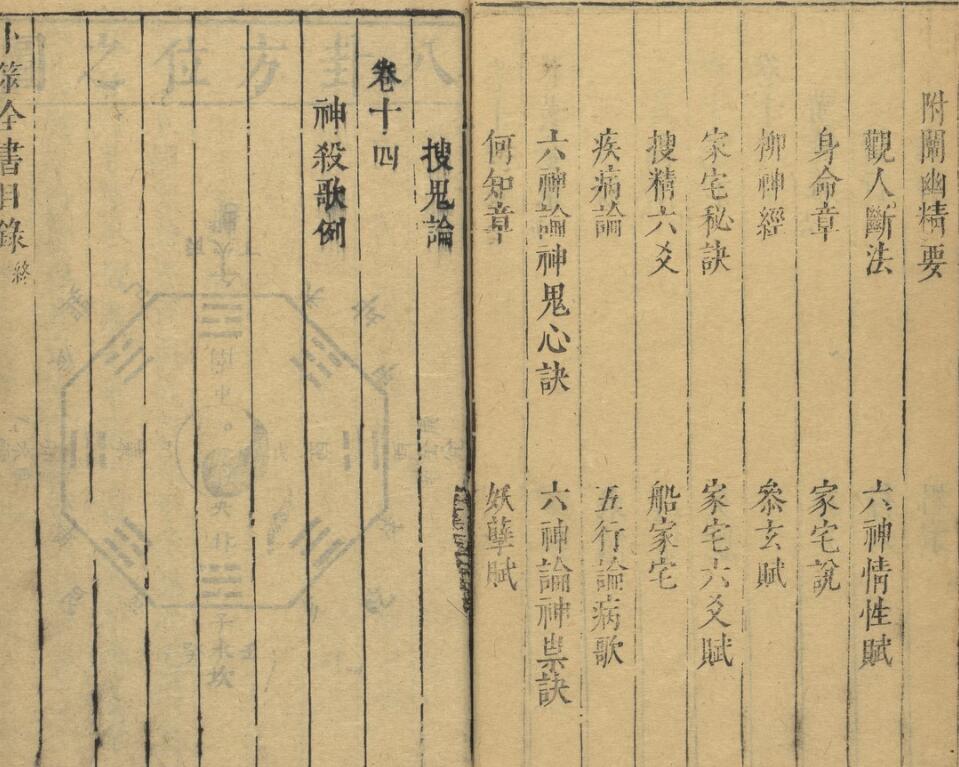 附闡幽精要
觀人斷法 六神情性賦
身命章 家宅說
柳神經 叅玄賦
家宅秘訣 家宅六爻賦
搜精六爻 船家宅
疾病論 五行論病歌
六神論神鬼心訣 六神論神祟訣
何知章 妖孽賦
搜鬼論
卷十四
神殺歌例
卜筮全書目錄終
八卦方位之圖